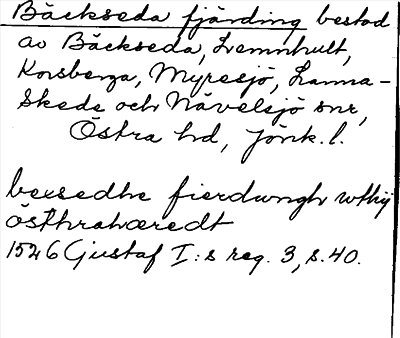 Bäckseda fjärding bestod
av Bäckseda, Lemnhult,
Korsberga, Myresjö, Lanna-
Skede och Nävelsjö snr,
Östra hd, Jönk. l.
bexsedhe fierdungh wthij
östhrahæredt
1526 Gustaf I:s reg. 3, s. 40.